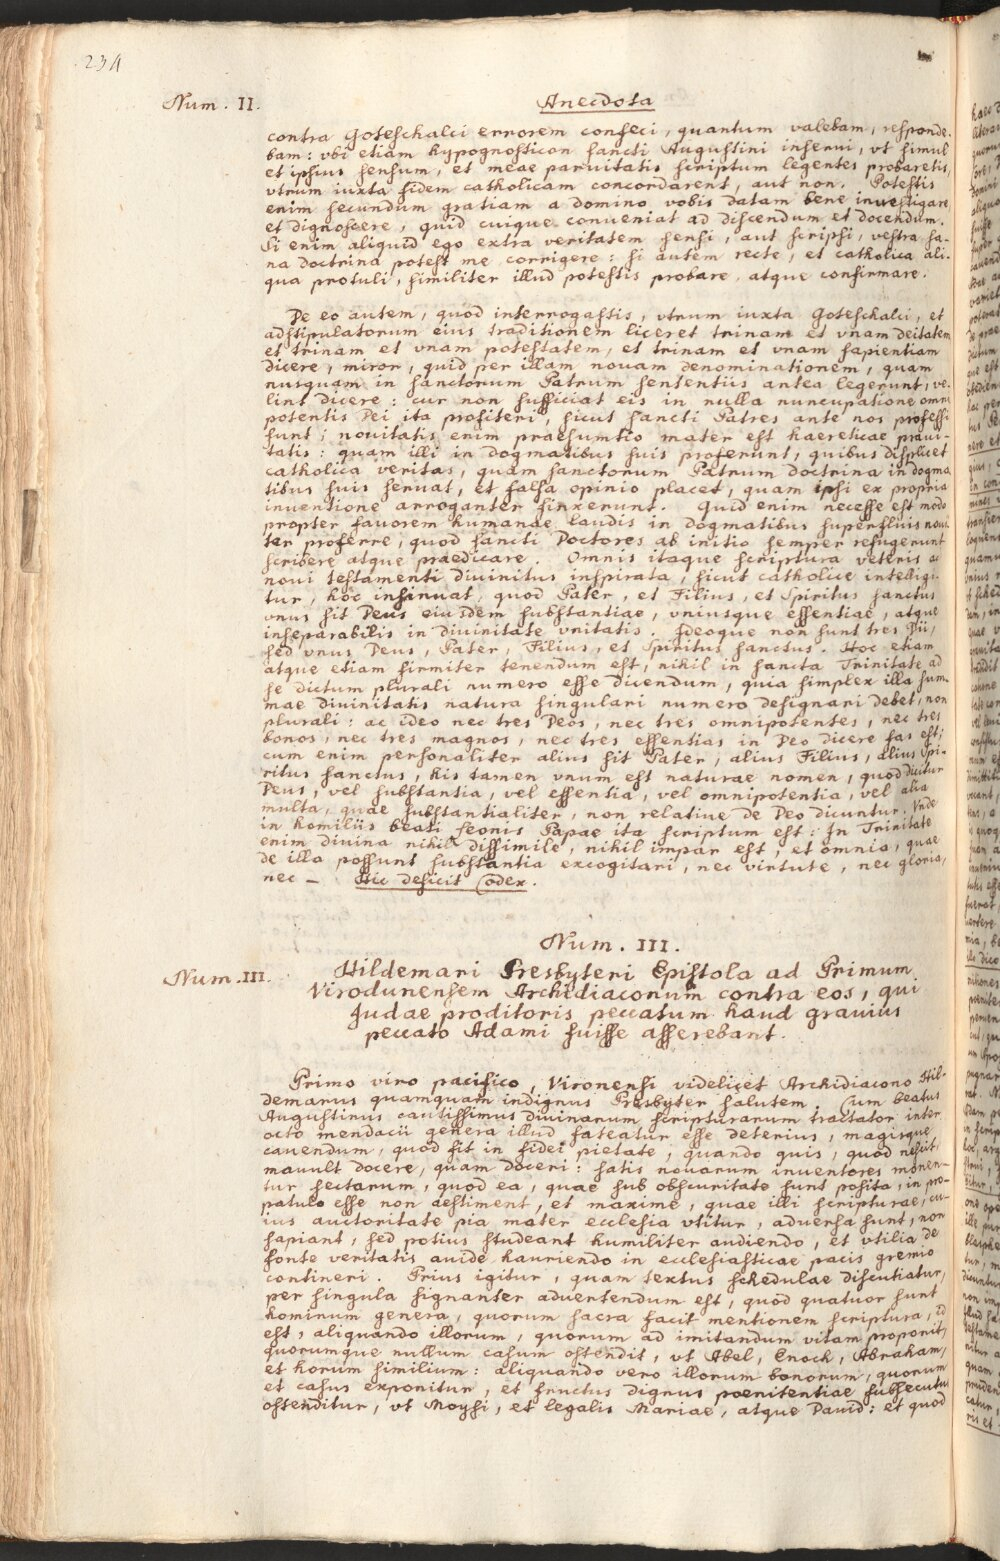 234
Num. II.
Anecdota
contra Goteschalci errorem confeci, quantum valebam, responde-
bam: vbi etiam hypognosticon sancti Augustini inserui, vt simul
et ipsius sensum, et meae paruitatis scriptum legentes probaretis,
vtrum iuxta fidem catholicam concordarent, aut non. Potestis
enim secundum gratiam a domino vobis datam bene inuestigare
et dignoscere, quid cuique conueniat ad discendum et docendum.
Si enim aliquid ego extra veritatem sensi, aut scripsi, vestra sa-
na doctrina potest me corrigere: si autem recte, et catholica ali-
qua protuli, similiter illud potestis probare atque confirmare.
De eo autem, quod interrogastis, vtrum iuxta Goteschalci, et
adstipulatorum eius traditionem liceret trinam et vnam deitatem
et trinam et vnam potestatem, et trinam et vnam sapientiam
dicere, miror, quid per illam nouam denominationem, quam
nusquam in sanctorum Patrum sententiis antea legerunt, ve-
lint dicere: cur non sufficiat eis in nulla nuncupatione omni
potentis Dei ita profiteri, sicut sancti Patres ante nos professi
sunt; nouitatis enim praesumtio mater est haereticae praui-
tatis: quam illi in dogmatibus suis proferunt, quibus displicet
catholica veritas, quam sanctorum Patrum doctrina in dogma
tibus suis seruat, et falsa opinio placet, quam ipsi ex propria
inuentione arroganter finxerunt. Quid enim necesse est modo
propter fauorem humanae laudis in dogmatibus superfluis noui
ter proferre, quod sancti Doctores ab initio semper refugerunt
scribere atque praedicare. Omnis itaque scriptura veteris ac
noui testamenti diuinitus inspirata, sicut catholice intelligi-
tur, hoc insinuat, quod Pater, et Filius, et Spiritus sanctus
vnus sit Deus eiusdem substantiae, vniusque essentiae, atque
inseparabilis in diuinitate vnitatis. Ideoque non sunt tres Dii,
sed vnus Deus, Pater, Filius, et Spiritus sanctus. Hoc etiam
atque etiam firmiter tenendum est, nihil in sancta Trinitate ad
se dictum plurali numero esse dicendum, quia simplex illa sum-
mae diuinitatis natura singulari numero designari debet, non
plurali: ac ideo nec tres Deos, nec tres omnipotentes, nec tres
bonos, nec tres magnos, nec tres essentias in Deo dicere fas est;
cum enim personaliter alius sit Pater, alius Filius, alius Spi-
ritus sanctus, his tamen vnum est naturae nomen, quod dicitur
Deus, vel substantia, vel essentia, vel omnipotentia, vel alia
multa, quae substantialiter, non relatiue de Deo dicuntur. Vnde
in homiliis beati Leonis Papae ita scriptum est: In Trinitate
enim diuina nihil dissimile, nihil impar est, et omnia, quae
de illa possunt substantia excogitari, nec virtute, nec gloria,
nec — Hic deficit Codex.
Num. III.
Num. III.
Hildemari Presbyteri Epistola ad Primum
Virodunensem Archidiaconum contra eos, qui
Judae proditoris peccatum haud grauius
peccato Adami fuisse asserebant.
Primo viro pacifico, Vironensi videlicet Archidiacono Hil-
demarus quamquam indignus Presbyter salutem. Cum beatus
Augustinus cautissimus diuinarum scripturarum tractator inter
octo mendacii genera illud fateatur esse deterius, magisque
cauendum, quod fit in fidei pietate, quando quis, quod nescit,
mauult docere, quam doceri: satis nouarum inuentores monen-
tur sectarum, quod ea, quae sub obscuritate sunt posita, in pro-
patulo esse non aestiment, et maxime, quae illi scripturae, cu-
ius auctoritate pia mater ecclesia vtitur, aduersa sunt, non
sapiant, sed potius studeant humiliter audiendo, et vtilia de
fonte veritatis auide hauriendo in ecclesiasticae pacis gremio
contineri. Prius igitur, quam textus schedulae discutiatur,
per singula signanter aduertendum est, quod quatuor sunt
hominum genera, quorum sacra facit mentionem scriptura, id
est, aliquando illorum, quorum ad imitandum vitam proponit,
quorumque nullum casum ostendit, vt Abel, Enoch, Abraham,
et horum similium: aliquando vero illorum bonorum, quorum
et casus exponitur, et fructus dignus poenitentiae subsecutus
ostenditur, vt Moysi, et legalis Mariae, atque Dauid: et quod